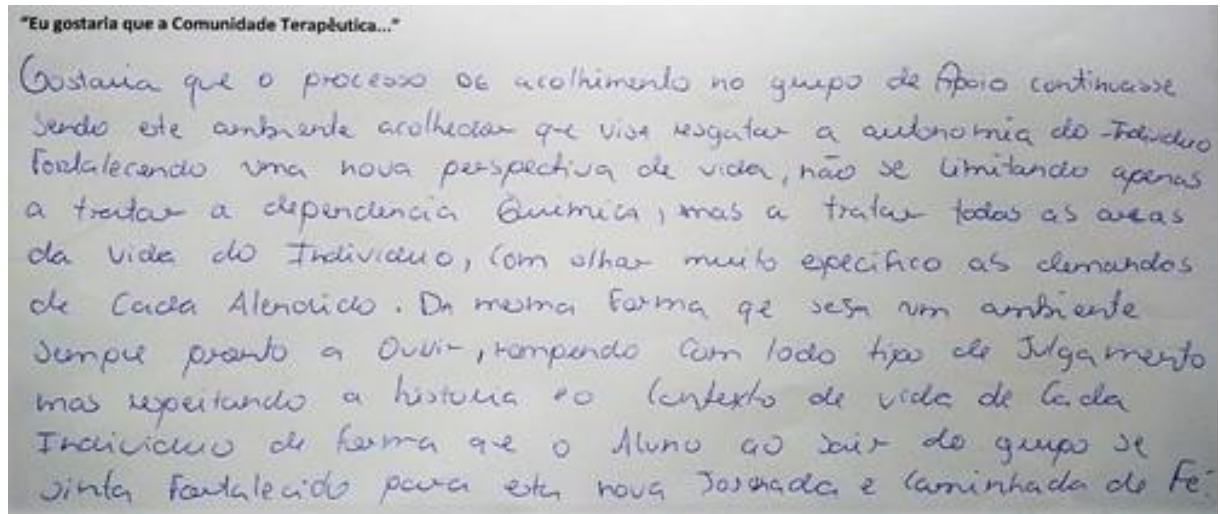 "Eu gostaria que a Comunidade Terapêutica..."
Gostaria que o processo de acolhimento no grupo de Apoio continuasse
sendo este ambiente acolhedor que visa resgatar a autonomia do Individuo
Fortalecendo uma nova perspectiva de vida, não se limitando apenas
a tratar a dependencia Quimica, mas a tratar todas as areas
da vida do Individuo, com olhar muito especifico as demandas
de Cada Atendido. Da mesma forma qe seja um ambiente
sempre pronto a Ouvir, rompendo com todo tipo de Julgamento
mas respeitando a historia e o Contexto de vida de Cada
Individuo de forma que o Aluno ao sair do grupo se
sinta Fortalecido para esta nova Jornada e Caminhada de Fé.